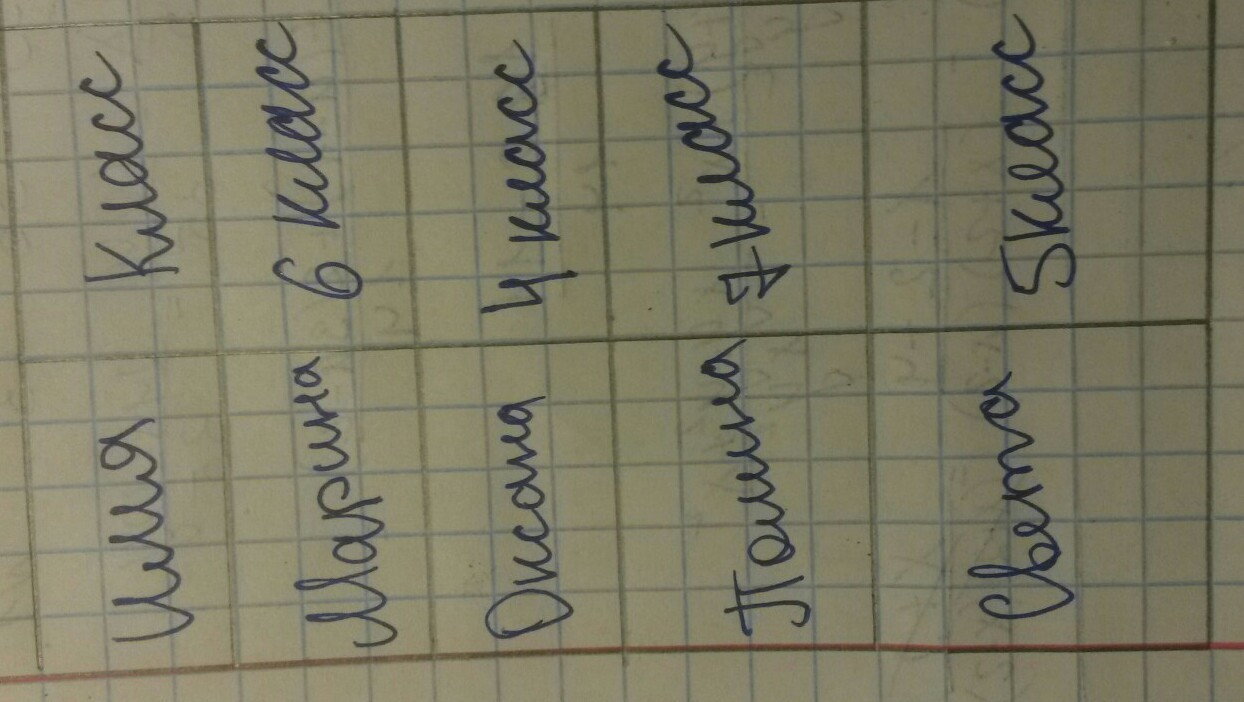 Имя Класс
Марина 6 класс
Оксана 4 класс
Полина 7 класс
Света 5 класс